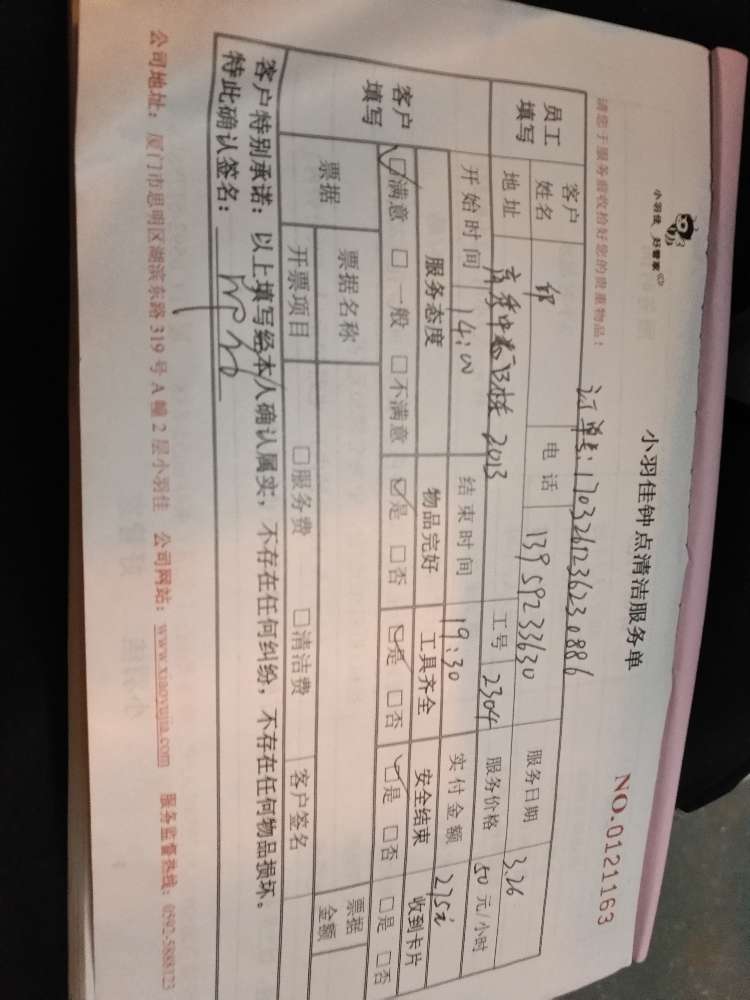 小羽佳 好管家
小羽佳钟点清洁服务单
NO.0121163
请您于服务前收拾好您的贵重物品！
订单号：17032612362308 86
员工填写
客户姓名
电话 13959233630
服务日期 3.26
地址 B栋 2013
工号 2304
服务价格 50 元/小时
开始时间 14:00
结束时间 19:30
实付金额 275元
客户填写
服务态度 物品完好 工具齐全 安全结束 收到卡片
☑满意 □一般 □不满意 ☑是 □否 ☑是 □否 ☑是 □否 □是 □否
票据
票据名称
票据金额
开票项目 □服务费 □清洁费 客户签名
客户特别承诺：以上填写经本人确认属实，不存在任何纠纷，不存在任何物品损坏。
特此确认签名：
公司地址：厦门市思明区湖滨东路 319 号 A 幢 2 层小羽佳 公司网站：www.xiaoyujia.com 服务监督热线：0592-5888123